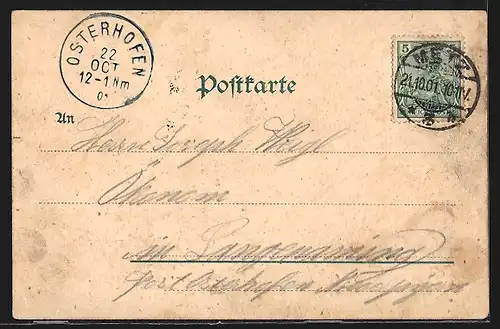 OSTERHOFEN
22
OCT
12-1 Nm
Postkarte
5
METZ
21.10.01.
An
Herrn Joseph Weigl
Ökonom
in Langenamming
Post Osterhofen